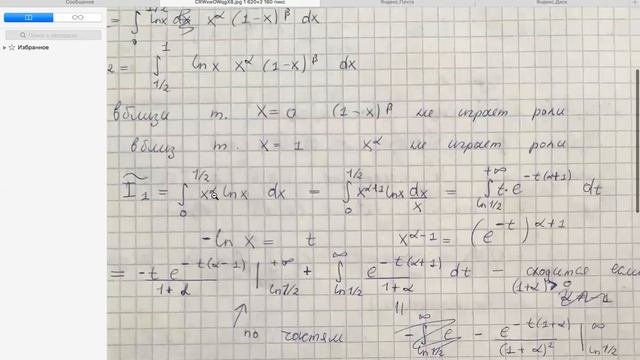 Сообщения CRWxwOWqgX8.jpg 1 620×2 160 пикс Яндекс.Почта Яндекс.Диск
Избранное
= ∫₀^{1/2} ln x dx x^α (1-x)^β dx
2 = ∫_{1/2}^{1} ln x x^α (1-x)^β dx
вблизи т. x=0 (1-x)^β не играет роли
вблиз т. x=1 x^α не играет роли
Ĩ₁ = ∫₀^{1/2} x^α ln x dx = ∫₀^{1/2} x^{α+1} ln x dx/x = ∫_{ln 1/2}^{+∞} t·e^{-t(α+1)} dt
-ln x = t x^{α-1} = (e^{-t})^{α+1}
= -t e^{-t(α-1)}/1+α |_{ln 1/2}^{+∞} + ∫_{ln 1/2}^{∞} e^{-t(α+1)}/1+α dt - сходится если (1+α)>0
↑ по частям ||
-∫_{ln 1/2}^{∞} e - e^{-t(1+α)}/(1+α)² |_{ln 1/2}^{∞}